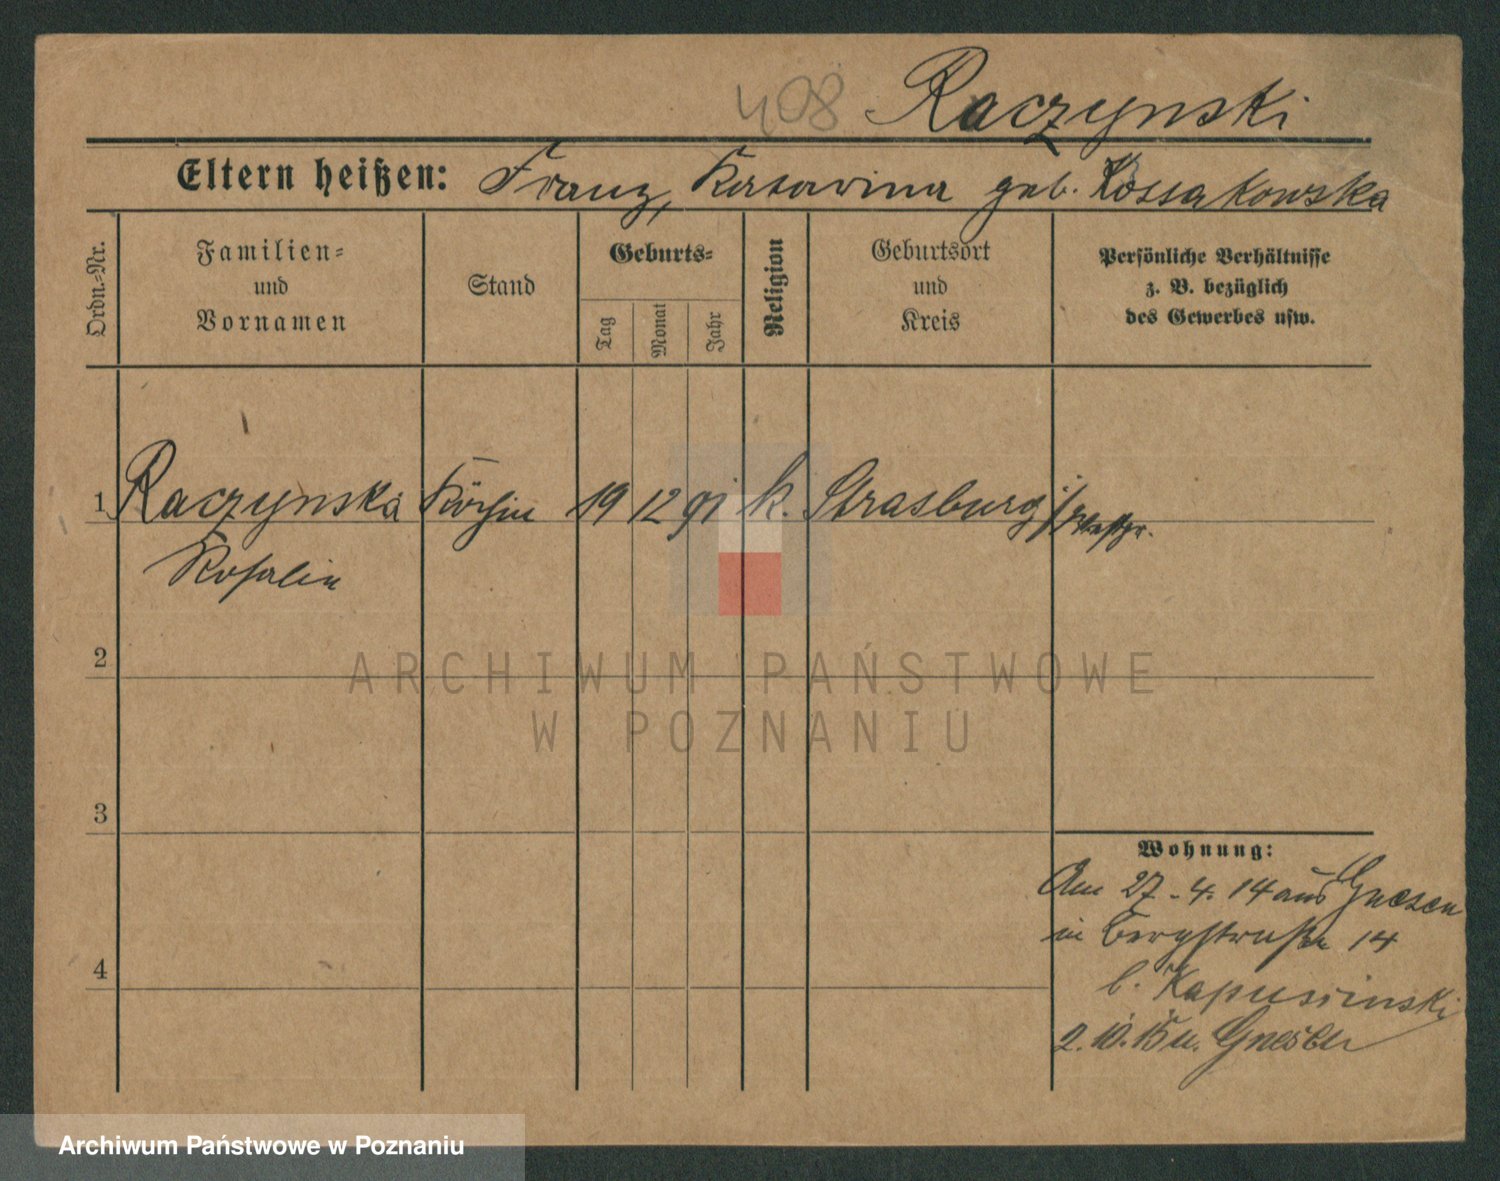 408 Raczynski
Eltern heißen: Franz, Katarina geb. Kossakowska
Ordn.-Nr.
Familien-
und
Vornamen
Stand
Geburts-
Tag
Monat
Jahr
Religion
Geburtsort
und
Kreis
Persönliche Verhältnisse
z. B. bezüglich
des Gewerbes usw.
1 Raczynska Köchin 19 12 91 k. Strasburg i/Westpr.
Rosalie
2
3
4
Wohnung:
Am 27.4.14 aus Gnesen
in Bergstraße 14
b. Kapuscinski
2.10.15 n. Gnesen
ARCHIWUM PAŃSTWOWE
W POZNANIU
Archiwum Państwowe w Poznaniu